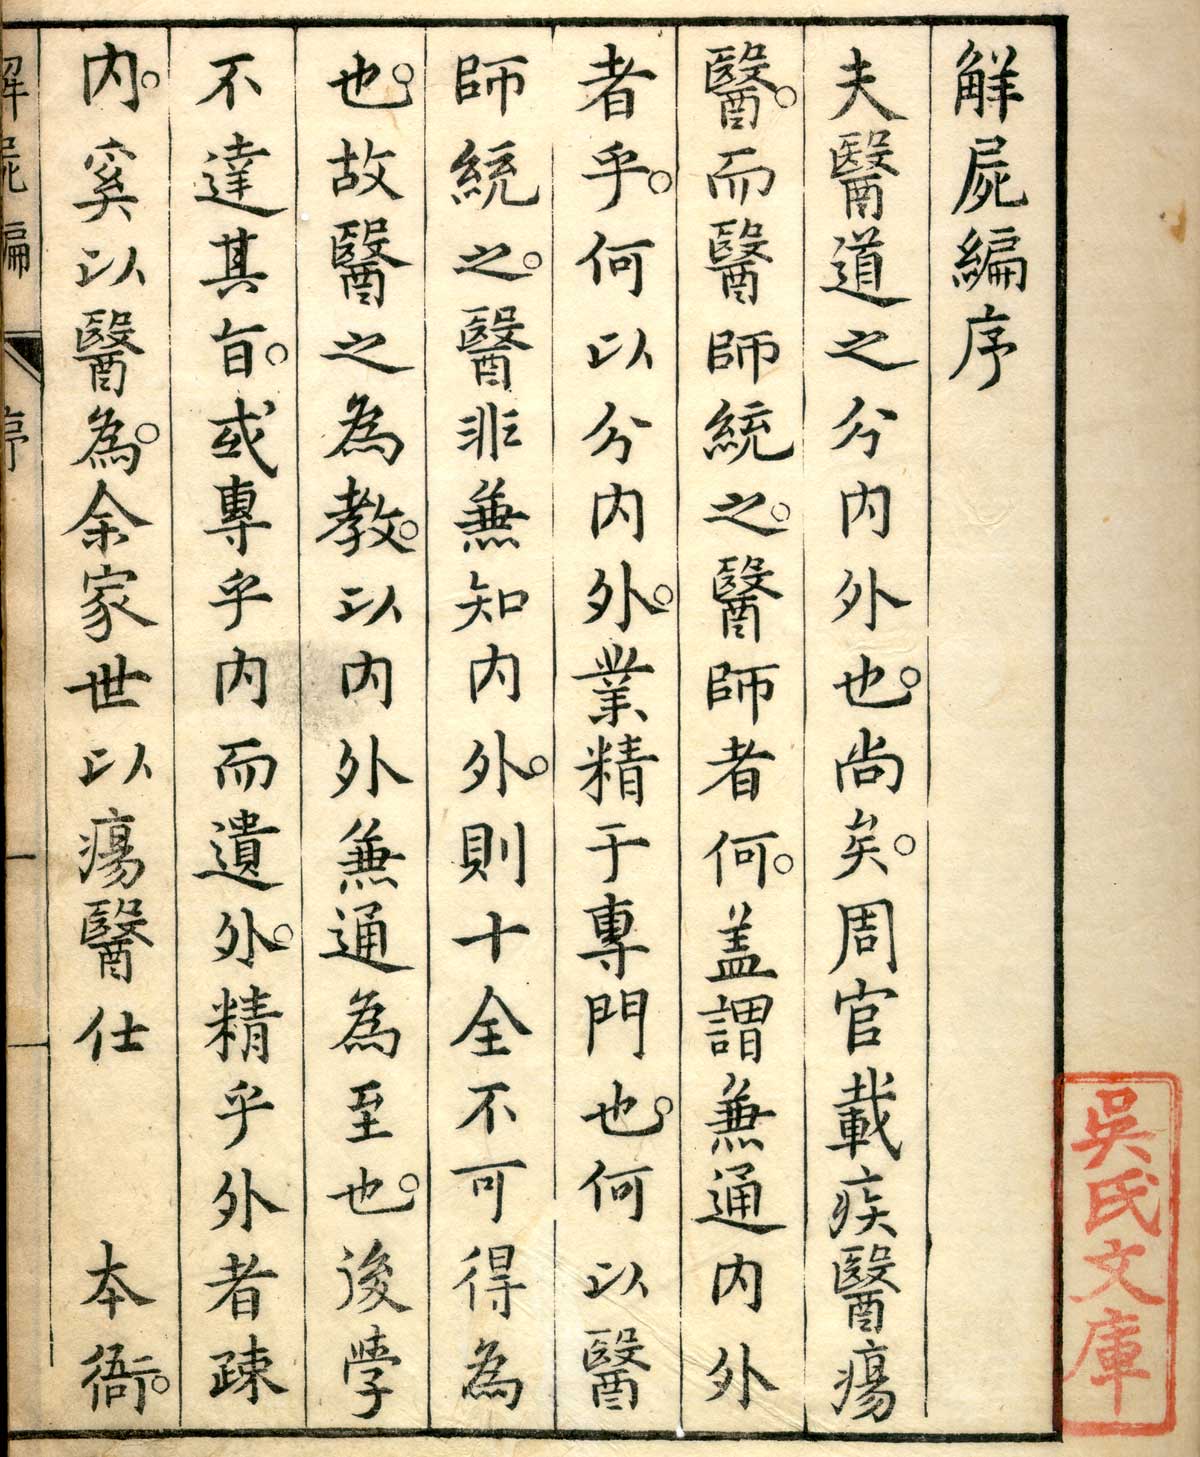 解屍編序
夫醫道之分内外也。尚矣。周官載疾醫瘍
醫。而醫師統之。醫師者何。盖謂兼通内外
者乎。何以分内外。業精于專門也。何以醫
師統之。醫非兼知内外。則十全不可得為
也。故醫之為教。以内外兼通為至也。後學
不達其旨。或專乎内而遺外。精乎外者疎
内。奚以醫為。余家世以瘍醫仕　本衙。
解屍編　序
吳氏文庫